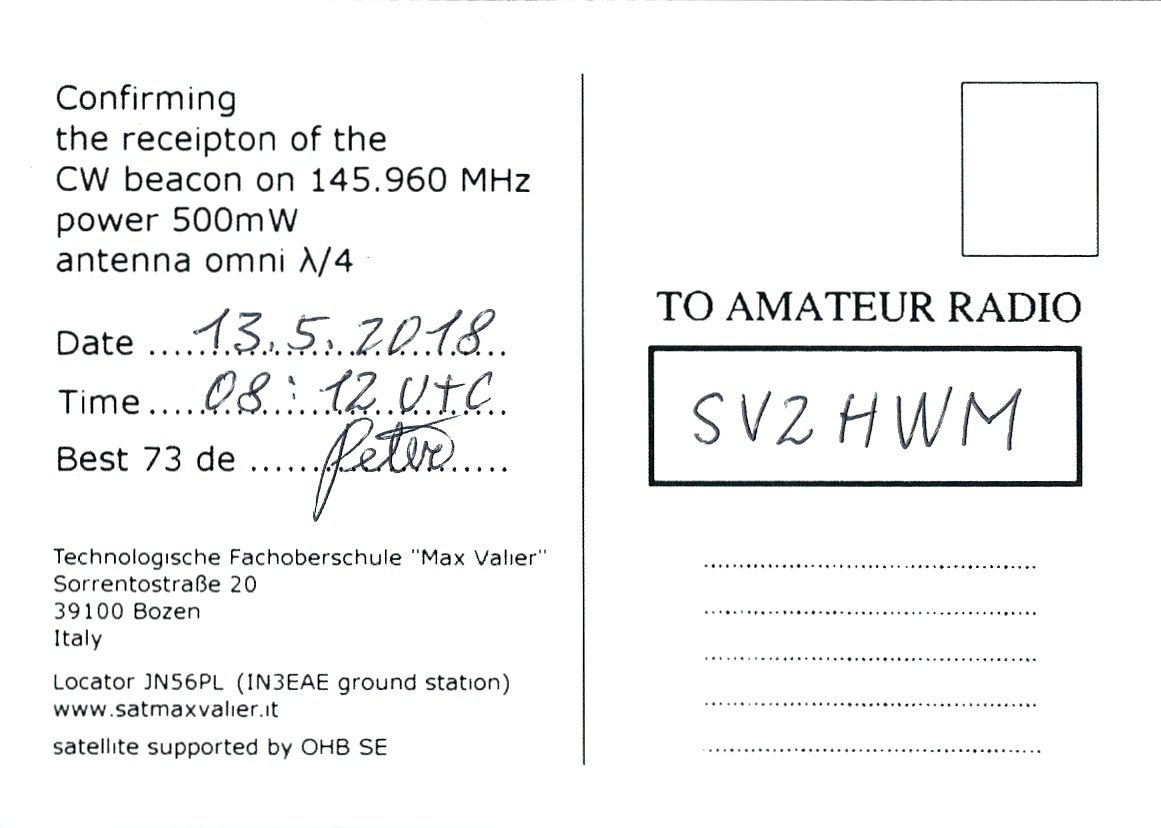 Confirming
the receipton of the
CW beacon on 145.960 MHz
power 500mW
antenna omni λ/4
Date ......13.5.2018......
Time ......08:12 UTC......
Best 73 de ......Peter......
Technologische Fachoberschule "Max Valier"
Sorrentostraße 20
39100 Bozen
Italy
Locator JN56PL (IN3EAE ground station)
www.satmaxvalier.it
satellite supported by OHB SE
TO AMATEUR RADIO
SV2HWM